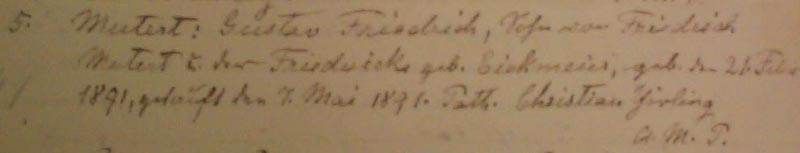 5. Mutert: Gustav Friedrich, Sohn von Friedrich
Mutert u. der Friedricke geb. Eickmeier, geb. den 21. Febr
1891, getauft den 7. Mai 1891. Path. Christian
A. M. P.